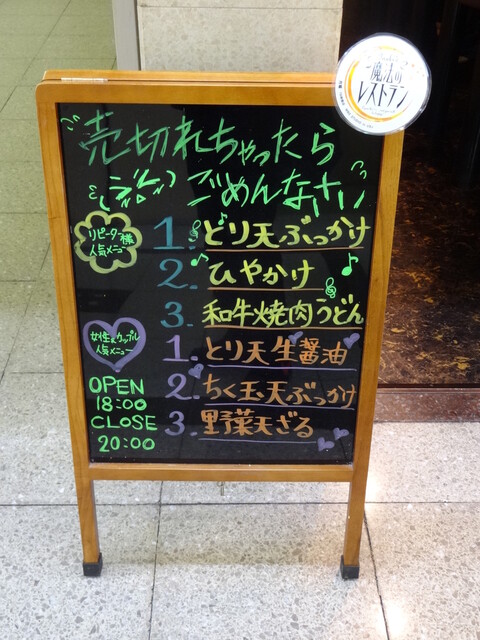 魔法の
レストラン
売切れちゃったら
ごめんなさい
リピーター様
人気メニュー
1. とり天ぶっかけ
2. ひやかけ
3. 和牛焼肉うどん
女性&カップル
人気メニュー
1. とり天生醤油
2. ちく玉天ぶっかけ
3. 野菜天ざる
OPEN
18:00
CLOSE
20:00